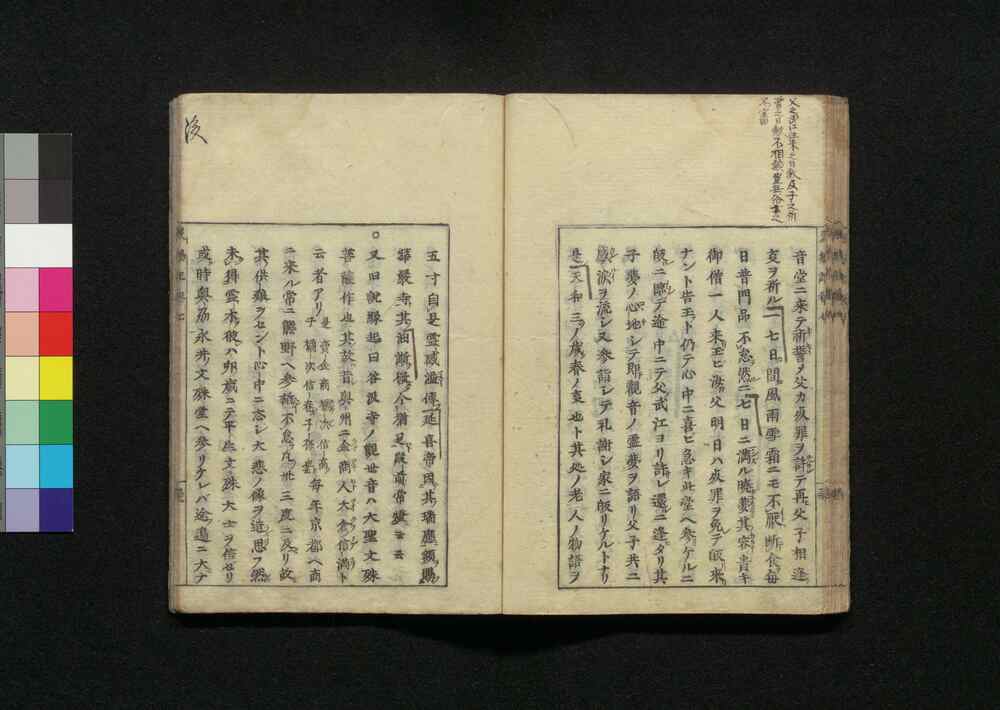 音堂ニ来テ祈誓ヲ父カ疚罪ヲ許テ再父子相逢
支ヲ祈ル一七日ノ間風雨雪霜ニモ不厭断食毎
日普門品不怠然ニ二七日ニ満ル暁夢其容貴キ
御僧一人来玉ヒ汝父明日ハ疚罪ヲ免テ皈来
ナント告玉ト仍テ心中ニ喜ヒ急キ此堂ヘ参ケルニ
既ニ臨テ途中ニテ父武江ヨリ許レ還ニ逢タリ其
子夢ノ心地シテ即観音ノ霊夢ヲ語リ父子共ニ
感涙ヲ流シ又参詣シテ礼謝シ家ニ皈リケルトナリ
是天和三ノ歳春ノ支也ト其処ノ老人ノ物語ヲ
後
五寸自是霊感溢傳延喜帝因其瑞應額賜
華嚴寺其油漸微今猶足殿前常燈云云
○又曰説縁起曰谷汲寺ノ観世音ハ大聖文殊
菩薩作也其故昔奥州ニ金商人大倉信満ト
云者アリ 毎年京都ヘ商
ニ来ル常ニ熊野ヘ参詣不怠凡卅三度ニ及リ故
其供養ヲセント心中ニ念シ大悲ノ像ヲ造思フ然
未得霊木彼ハ卯歳ニテ平生文殊大士ヲ信セリ
或時奥州永井ノ文殊堂ヘ参リケレバ途邉ニ大ナ